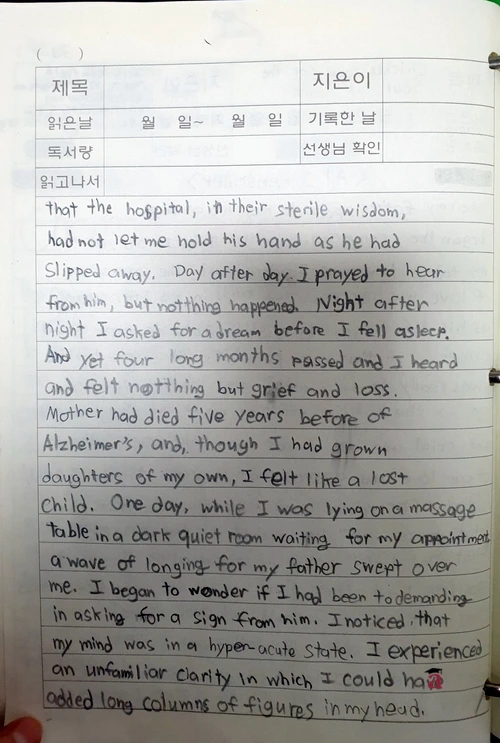 ( )
제목 지은이
읽은날 월 일~ 월 일 기록한 날
독서량 선생님 확인
읽고나서
that the hospital, in their sterile wisdom,
had not let me hold his hand as he had
Slipped away. Day after day I prayed to hear
from him, but notthing happened. Night after
night I asked for a dream before I fell asleep.
And yet four long months passed and I heard
and felt notthing but grief and loss.
Mother had died five years before of
Alzheimer's, and, though I had grown
daughters of my own, I felt like a lost
child. One day, while I was lying on a massage
table in a dark quiet room waiting for my appointment
a wave of longing for my father swept over
me. I began to wonder if I had been to demanding
in asking for a sign from him. I noticed that
my mind was in a hyper-acute state. I experienced
an unfamiliar clarity in which I could
added long columns of figures in my head.